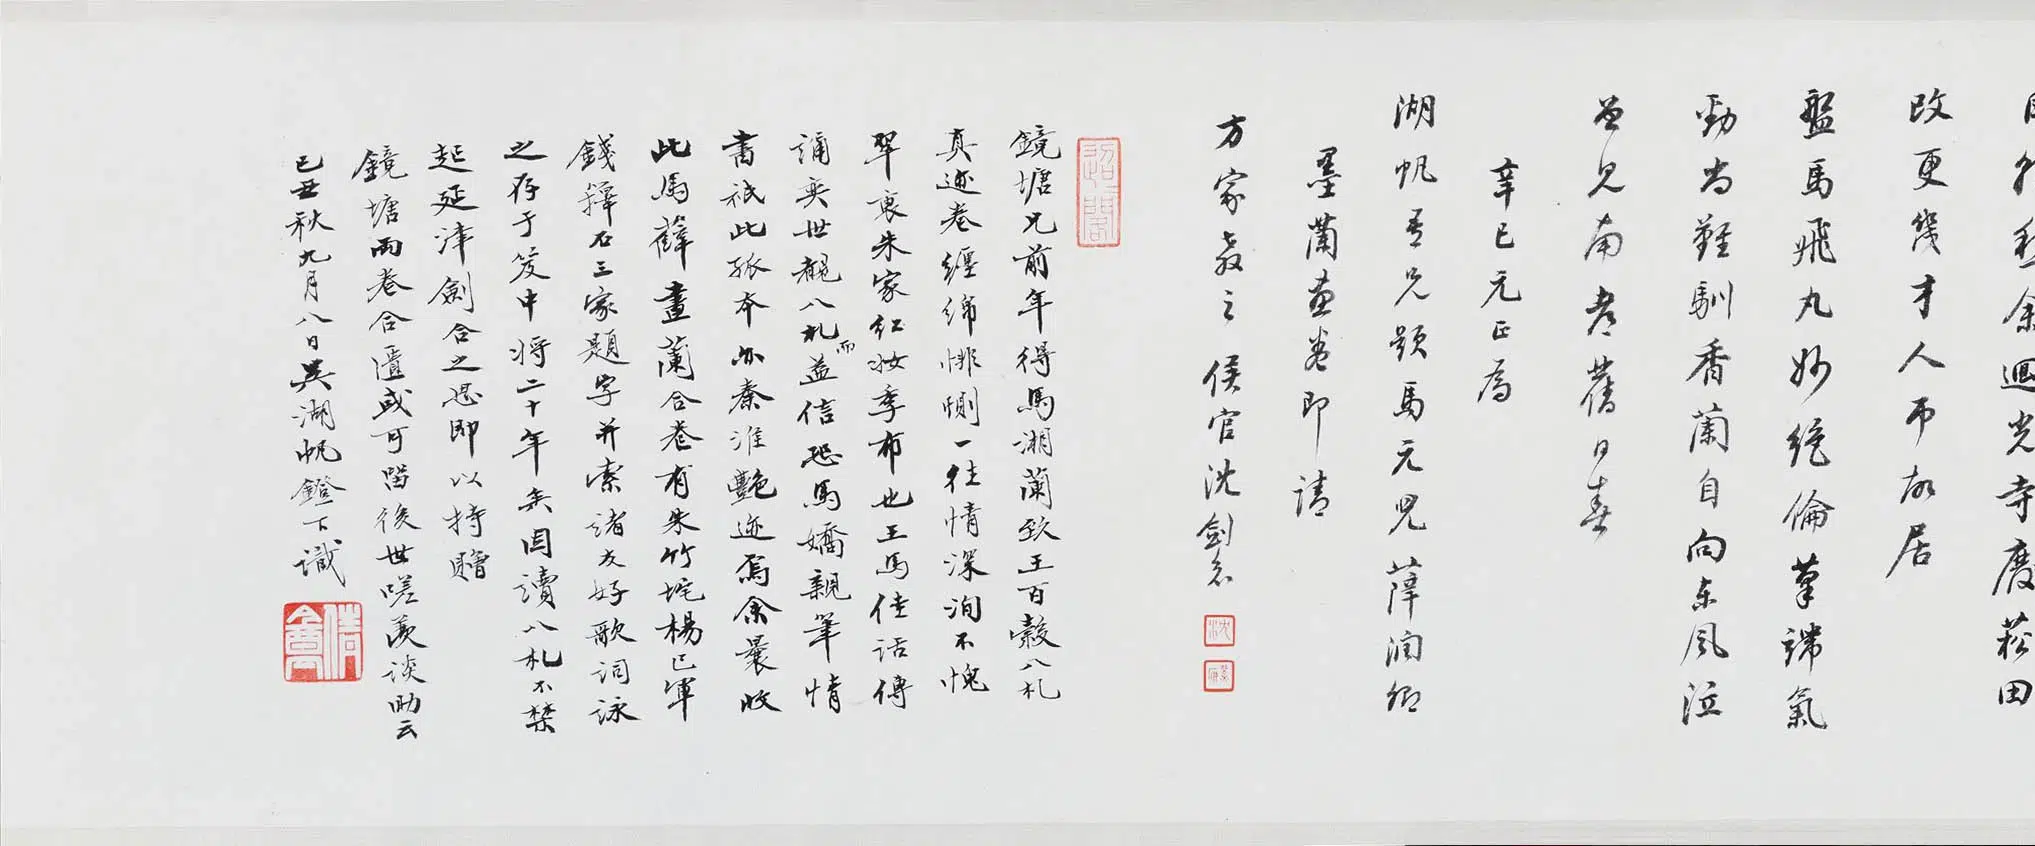 余迴光寺廢菘田
改更幾才人市故居
盤馬飛丸妙絕倫筆端氣
勁尚難馴香蘭自向東風泣
曾見南都舊日春
辛巳元正為
湖帆吾兄題馬元兒薛潤卿
墨蘭畫卷即請
方家教之侯官沈劍知
沈
鏡塘兄前年得馬湘蘭致王百穀八札
真迹卷纏綿悱惻一往情深洵不愧
翠裏朱家紅妝季布也王馬佳話傳
誦奕世觀八札而益信恐馬嬌親筆情
書祇此孤本亦秦淮艷迹焉余曩收
此馬薛畫蘭合卷有朱竹垞楊已軍
錢籜石三家題字并索諸友好歌詞詠
之存于笈中將二十年矣因讀八札不禁
起延津劍合之思即以持贈
鏡塘兩卷合匱或可留後世嗟羨談助云
己丑秋九月八日吳湖帆鐙下識
倩盦